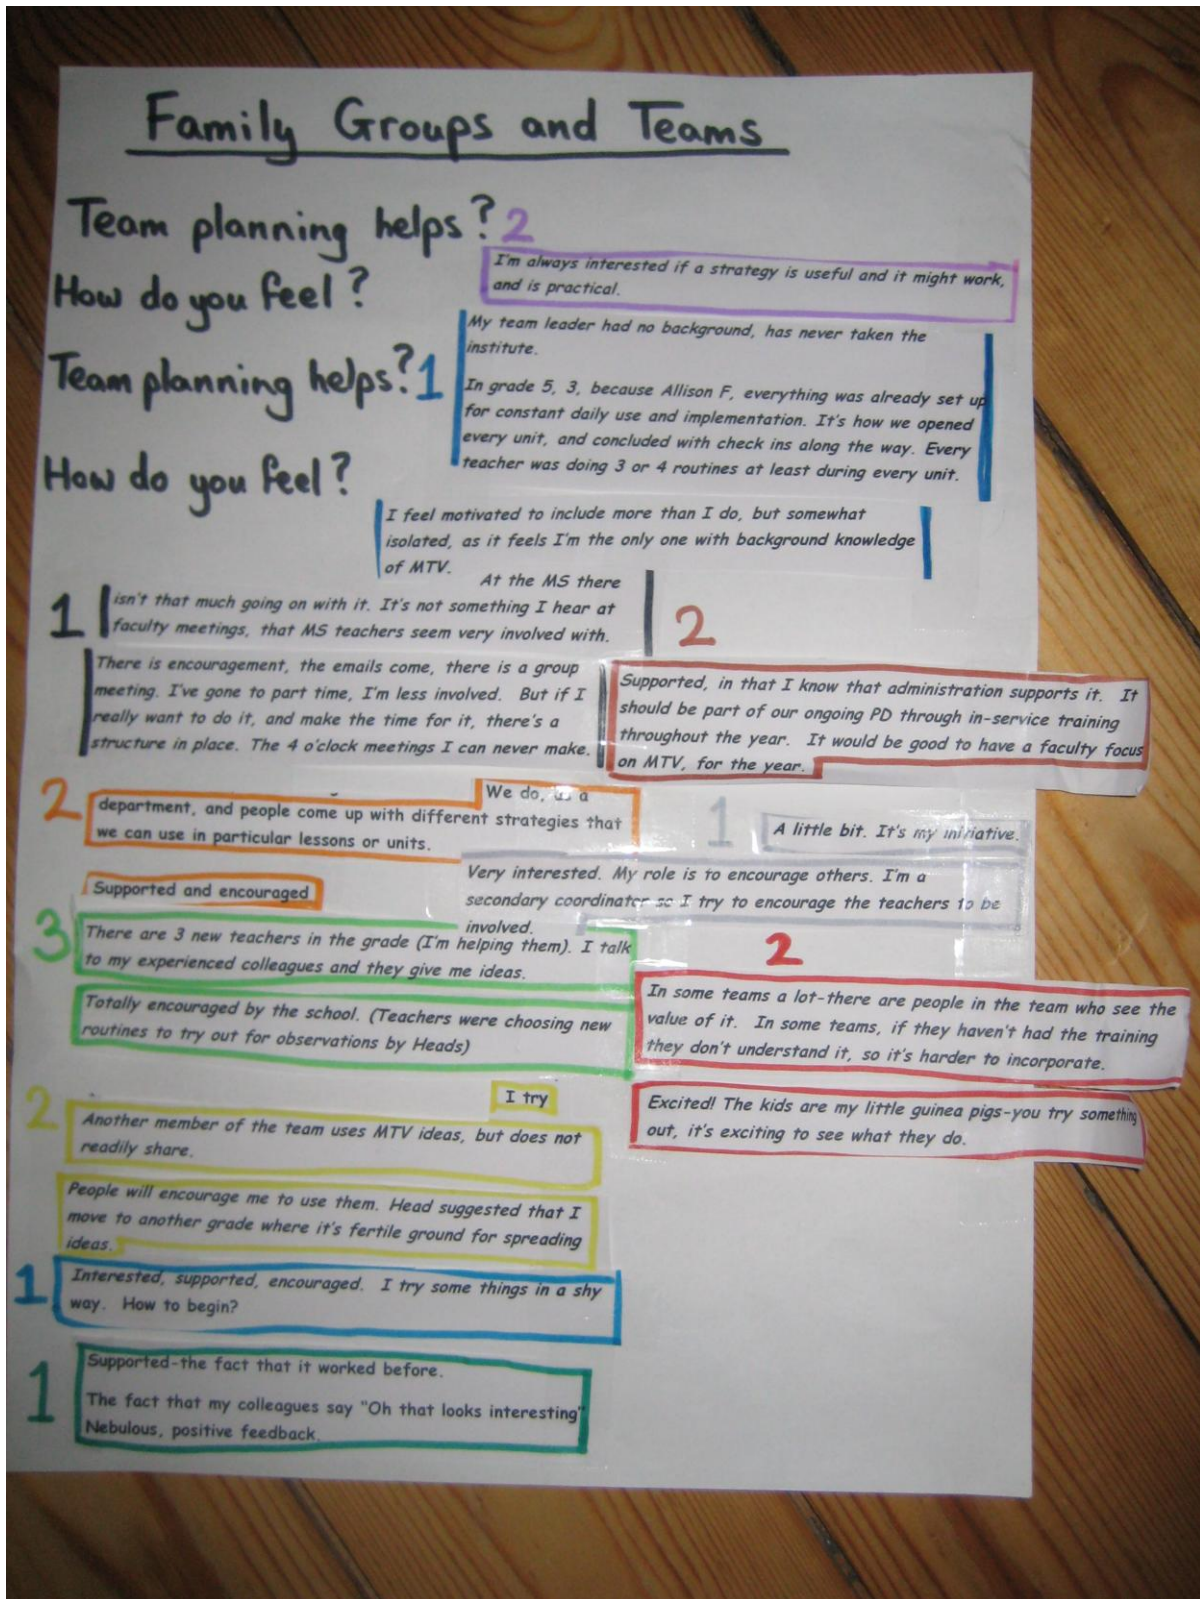 Family Groups and Teams
Team planning helps? 2
How do you feel?
I'm always interested if a strategy is useful and it might work,
and is practical.
Team planning helps? 1
How do you feel?
My team leader had no background, has never taken the
institute.
In grade 5, 3, because Allison F, everything was already set up
for constant daily use and implementation. It's how we opened
every unit, and concluded with check ins along the way. Every
teacher was doing 3 or 4 routines at least during every unit.
I feel motivated to include more than I do, but somewhat
isolated, as it feels I'm the only one with background knowledge
of MTV.
1
At the MS there
isn't that much going on with it. It's not something I hear at
faculty meetings, that MS teachers seem very involved with.
There is encouragement, the emails come, there is a group
meeting. I've gone to part time, I'm less involved. But if I
really want to do it, and make the time for it, there's a
structure in place. The 4 o'clock meetings I can never make.
2
Supported, in that I know that administration supports it. It
should be part of our ongoing PD through in-service training
throughout the year. It would be good to have a faculty focus
on MTV, for the year.
2
We do, as a
department, and people come up with different strategies that
we can use in particular lessons or units.
Supported and encouraged
1
A little bit. It's my initiative.
Very interested. My role is to encourage others. I'm a
secondary coordinator so I try to encourage the teachers to be
involved.
3
There are 3 new teachers in the grade (I'm helping them). I talk
to my experienced colleagues and they give me ideas.
Totally encouraged by the school. (Teachers were choosing new
routines to try out for observations by Heads)
2
In some teams a lot-there are people in the team who see the
value of it. In some teams, if they haven't had the training
they don't understand it, so it's harder to incorporate.
Excited! The kids are my little guinea pigs-you try something
out, it's exciting to see what they do.
2
I try
Another member of the team uses MTV ideas, but does not
readily share.
People will encourage me to use them. Head suggested that I
move to another grade where it's fertile ground for spreading
ideas.
1
Interested, supported, encouraged. I try some things in a shy
way. How to begin?
1
Supported-the fact that it worked before.
The fact that my colleagues say "Oh that looks interesting"
Nebulous, positive feedback.